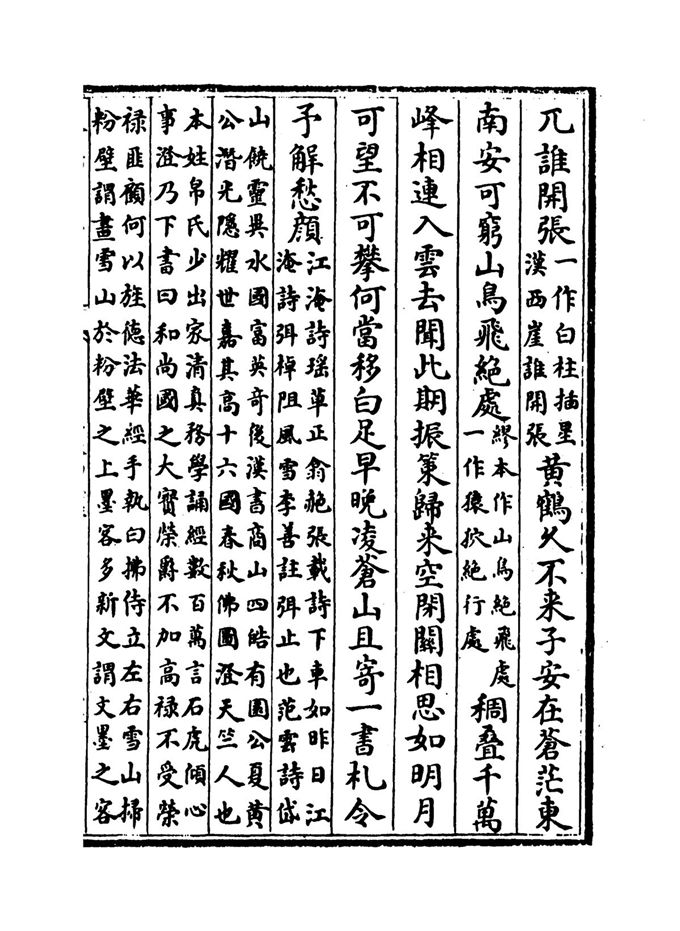 兀誰開張一作白柱插星漢西崖誰開張黄鶴久不来子安在蒼茫東
南安可窮山鳥飛絶處繆本作山鳥絶飛處一作猿狖絶行處稠叠千萬
峰相連入雲去聞此期振策歸来空閉關相思如明月
可望不可攀何當移白足早晚凌蒼山且寄一書札令
予解愁顔江淹詩瑶草正翕赩張載詩下車如昨日江淹詩弭棹阻風雪李善註弭止也范雲詩岱
山饒靈異水國富英奇後漢書商山四皓有園公夏黄公潛光隱耀世嘉其高十六國春秋佛圖澄天竺人也
本姓帛氏少出家清真務學誦經數百萬言石虎傾心事澄乃下書曰和尚國之大寳榮爵不加高禄不受榮
禄匪顧何以旌徳法華經手執白拂侍立左右雪山掃粉壁謂畫雪山於粉壁之上墨客多新文謂文墨之客